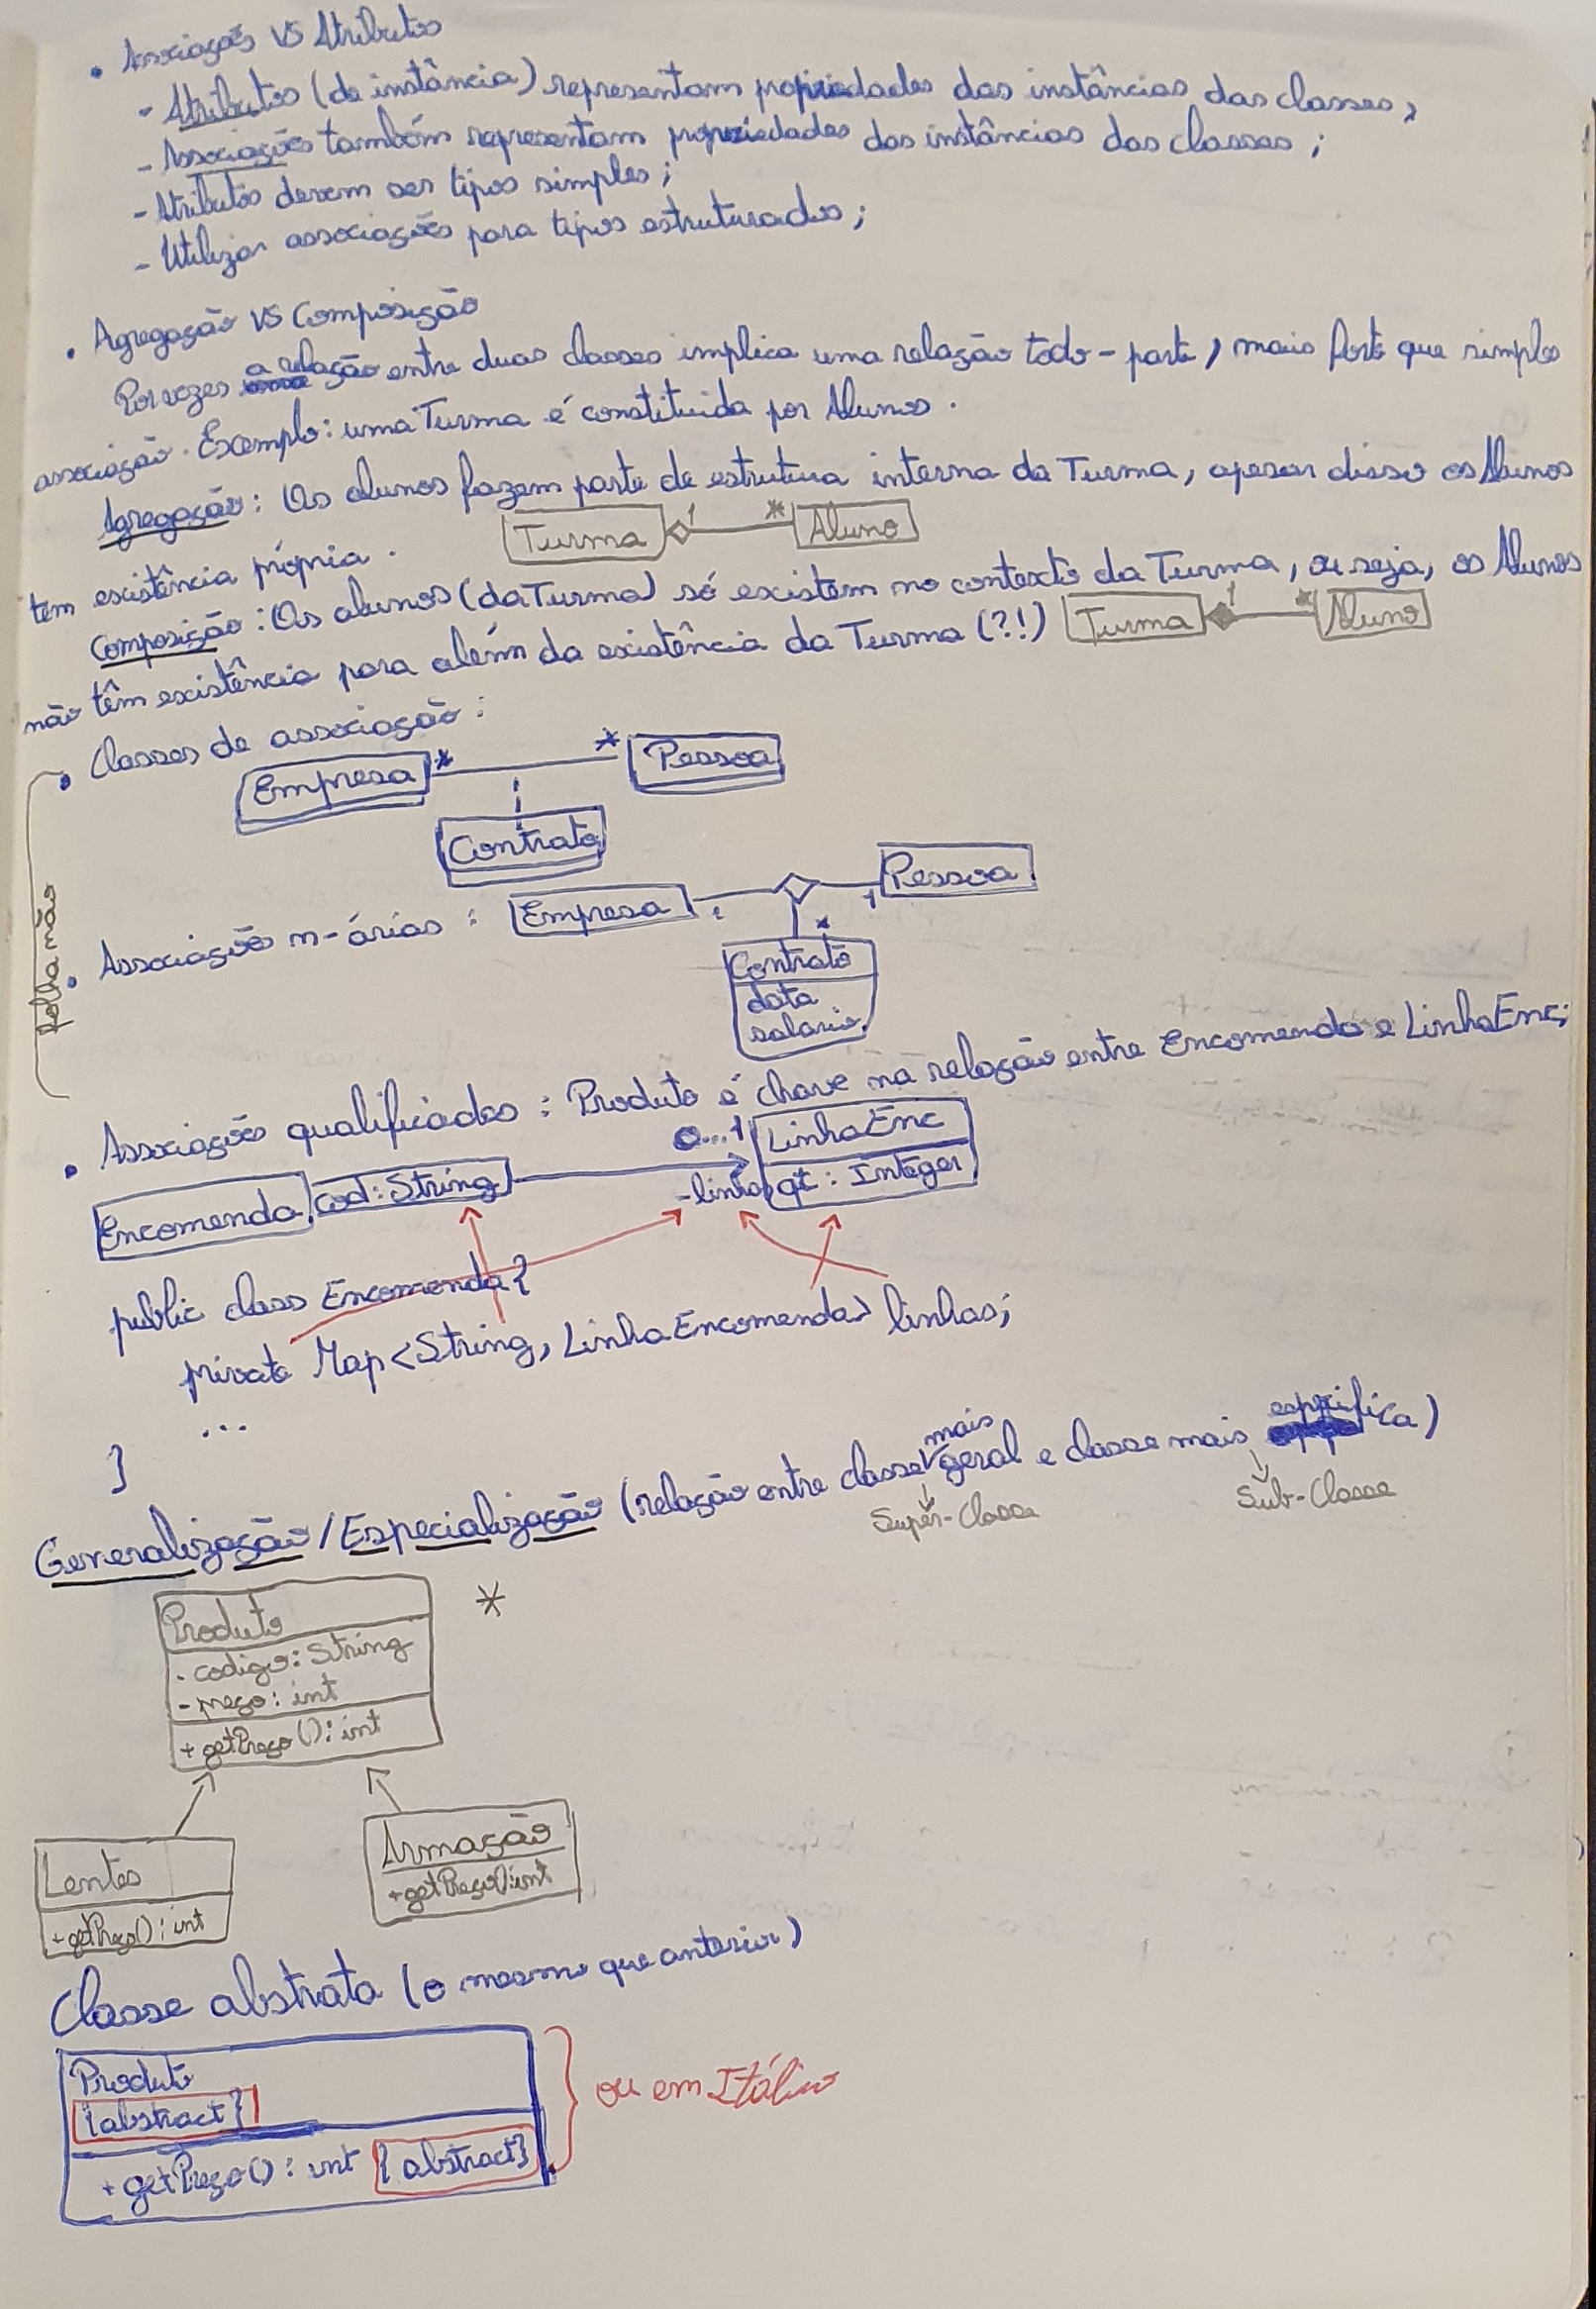 • Associações VS Atributos
- Atributos (de instância) representam propriedades das instâncias das classes;
- Associações também representam propriedades das instâncias das classes;
- Atributos devem ser tipos simples;
- Utilizar associações para tipos estruturados;
• Agregação VS Composição
Por vezes a relação entre duas classes implica uma relação todo-parte, mais forte que simples
associação. Exemplo: uma Turma é constituida por Alunos.
Agregação: Os alunos fazem parte de estrutura interna da Turma, apesar disso os Alunos
tem existência própria.
Turma 1 * Aluno
Composição: Os alunos (da Turma) só existem no contexto da Turma, ou seja, os Alunos
não têm existência para além da existência da Turma (?!)
Turma 1 * Aluno
folha não
• Classes de associação:
Empresa * * Pessoa
Contrato
• Associações n-árias: Empresa Pessoa
1
*
Contrato
data
salario
• Associações qualificadas: Produto é chave na relação entre Encomenda e LinhaEnc;
0...1 LinhaEnc
Encomenda cod: String -linhas qt: Integer
public class Encomenda {
private Map<String, LinhaEncomenda> linhas;
...
}
Generalização/Especialização (relação entre classe mais geral e classe mais especifica)
Super-Classe Sub-Classe
Produto *
- codigo: String
- preço: int
+ getPreço(): int
Lentes
+ getPreço(): int
Armação
+ getPreço(): int
Classe abstrata (o mesmo que anterior)
Produto
{abstract}
+ getPreço(): int {abstract}
ou em Itálico